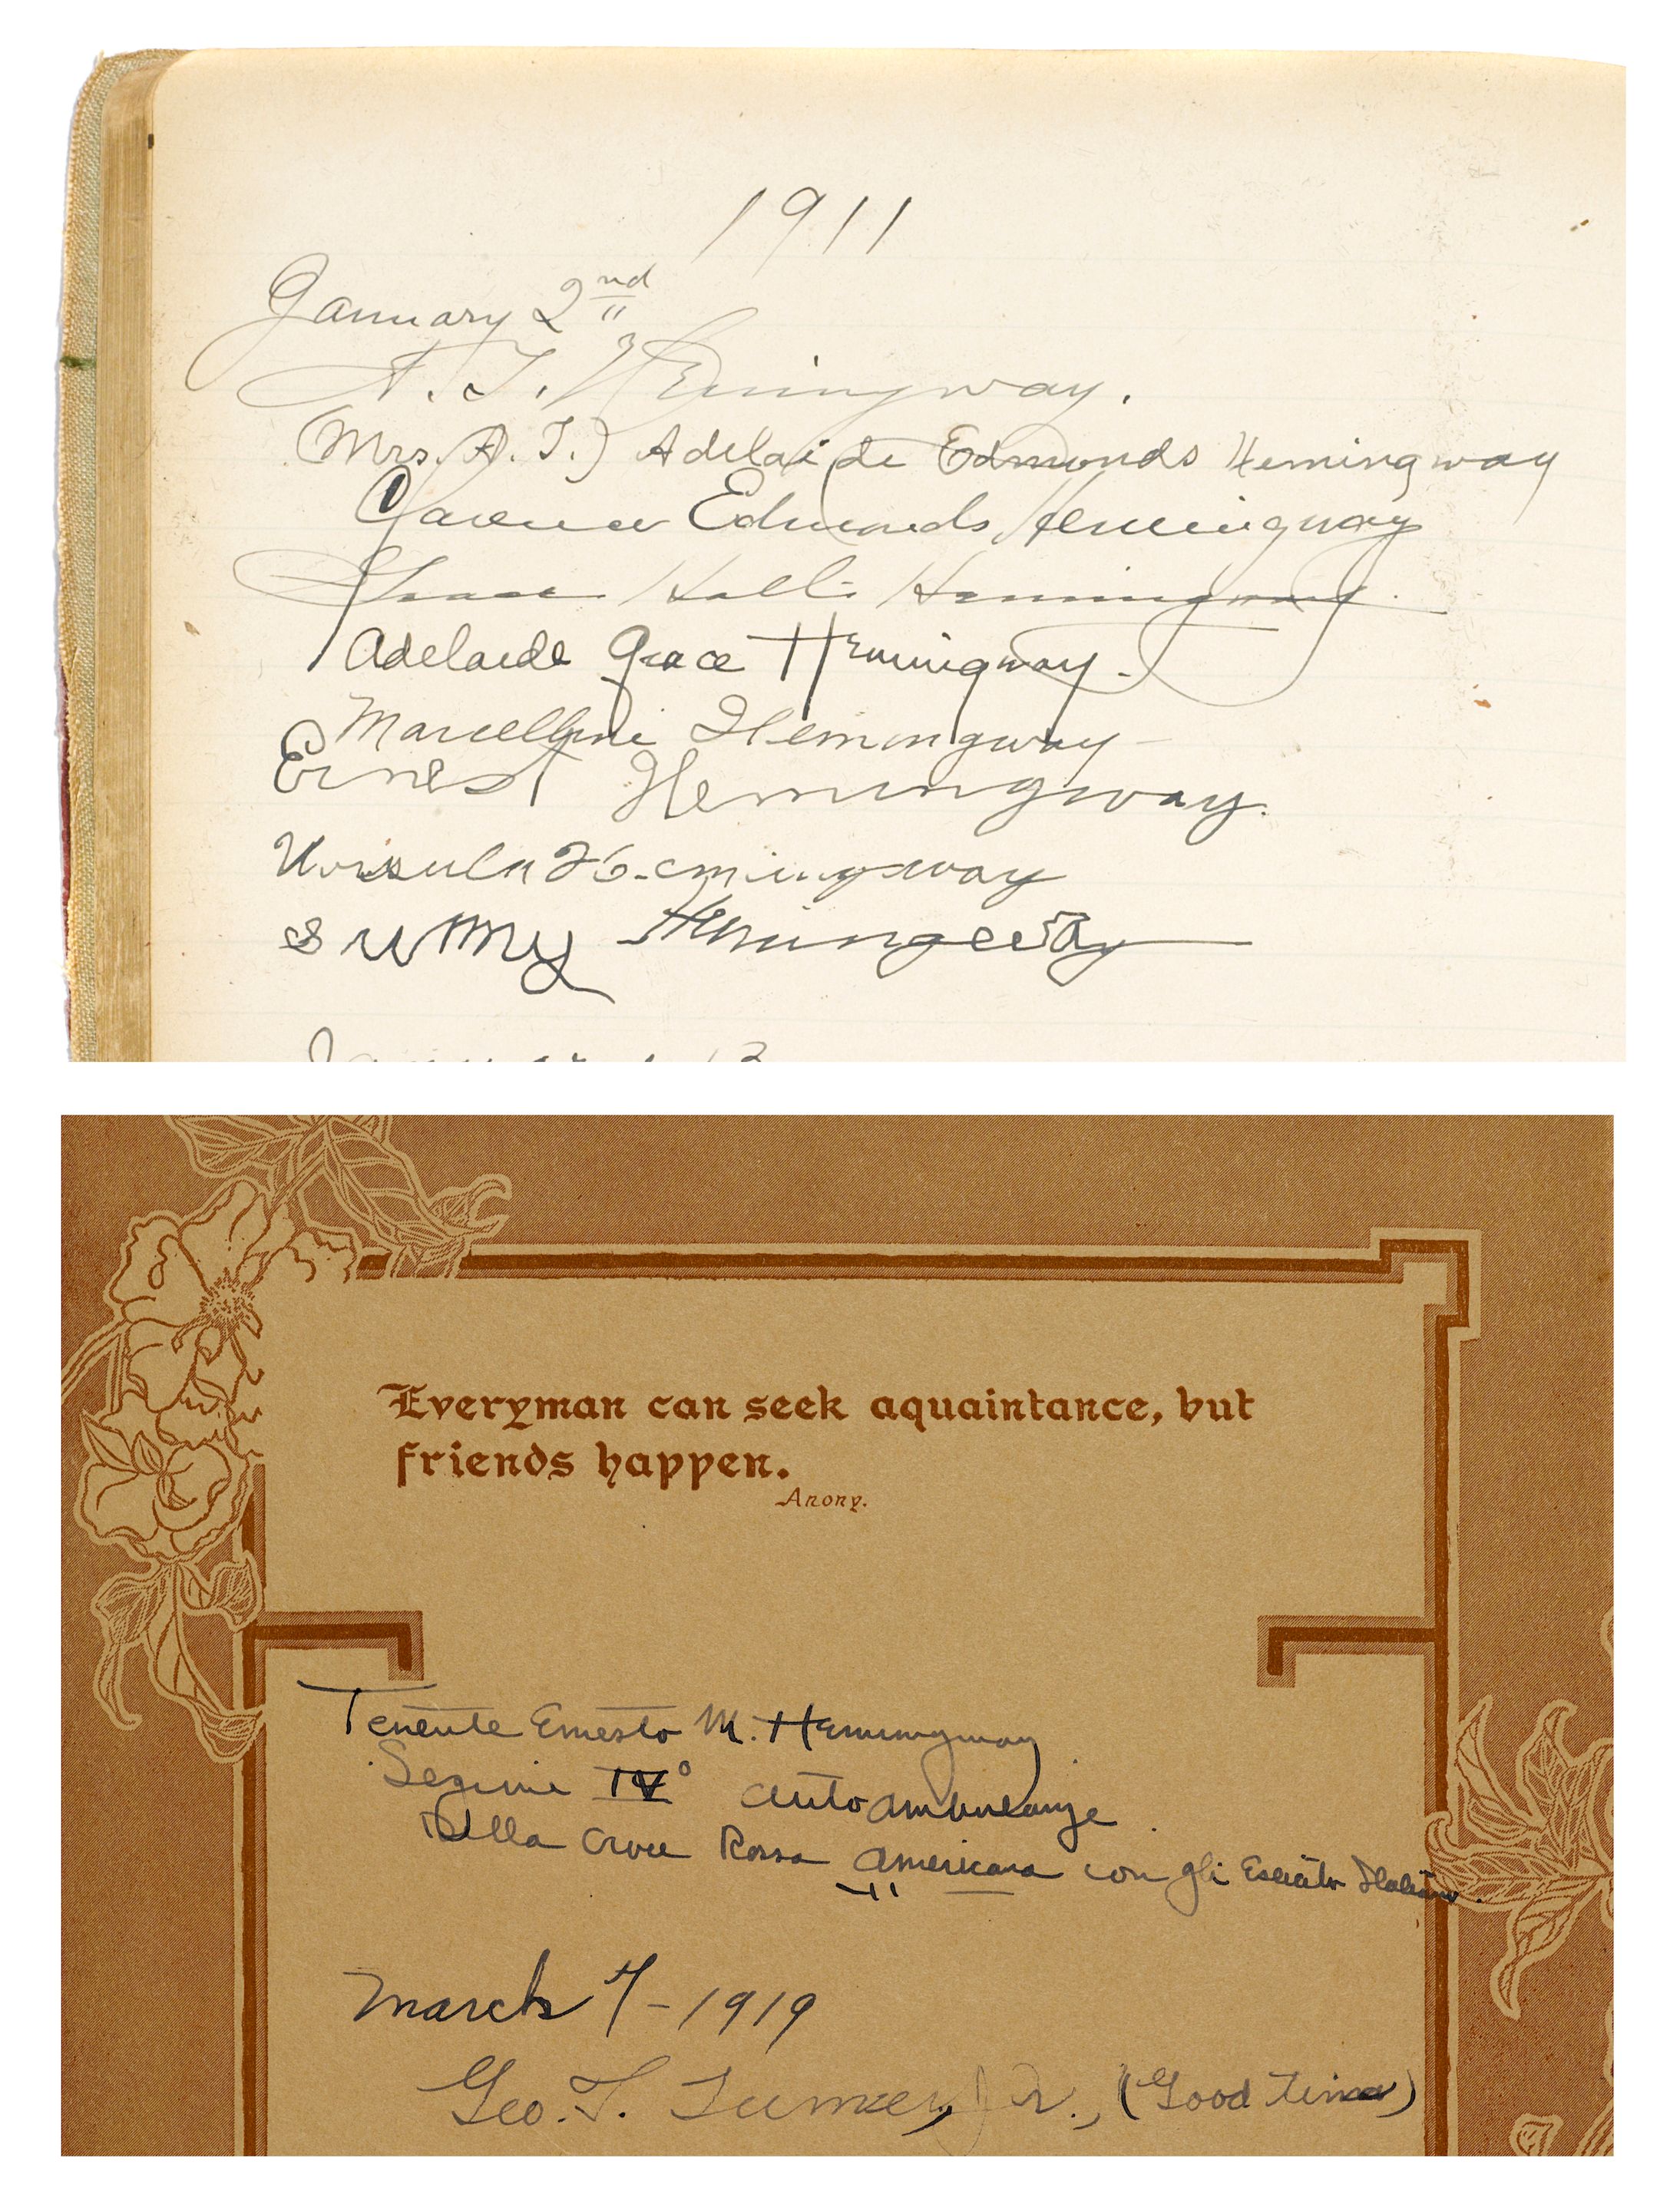 1911
January 2nd
A. T. Hemingway.
(Mrs. A. T.) Adelaide Edmonds Hemingway
Clarence Edmonds Hemingway
Grace Hall Hemingway.
Adelaide Grace Hemingway.
Marcelline Hemingway
Ernest Hemingway.
Ursula Hemingway
Sunny Hemingway
Everyman can seek aquaintance, but
friends happen.
Anony.
Tenente Ernesto M. Hemingway.
Sezione IVº autoambulanze
Della Croce Rossa Americana con gli Esercito Italiano.
March 4-1919
Geo. T. Jr., (Good time)